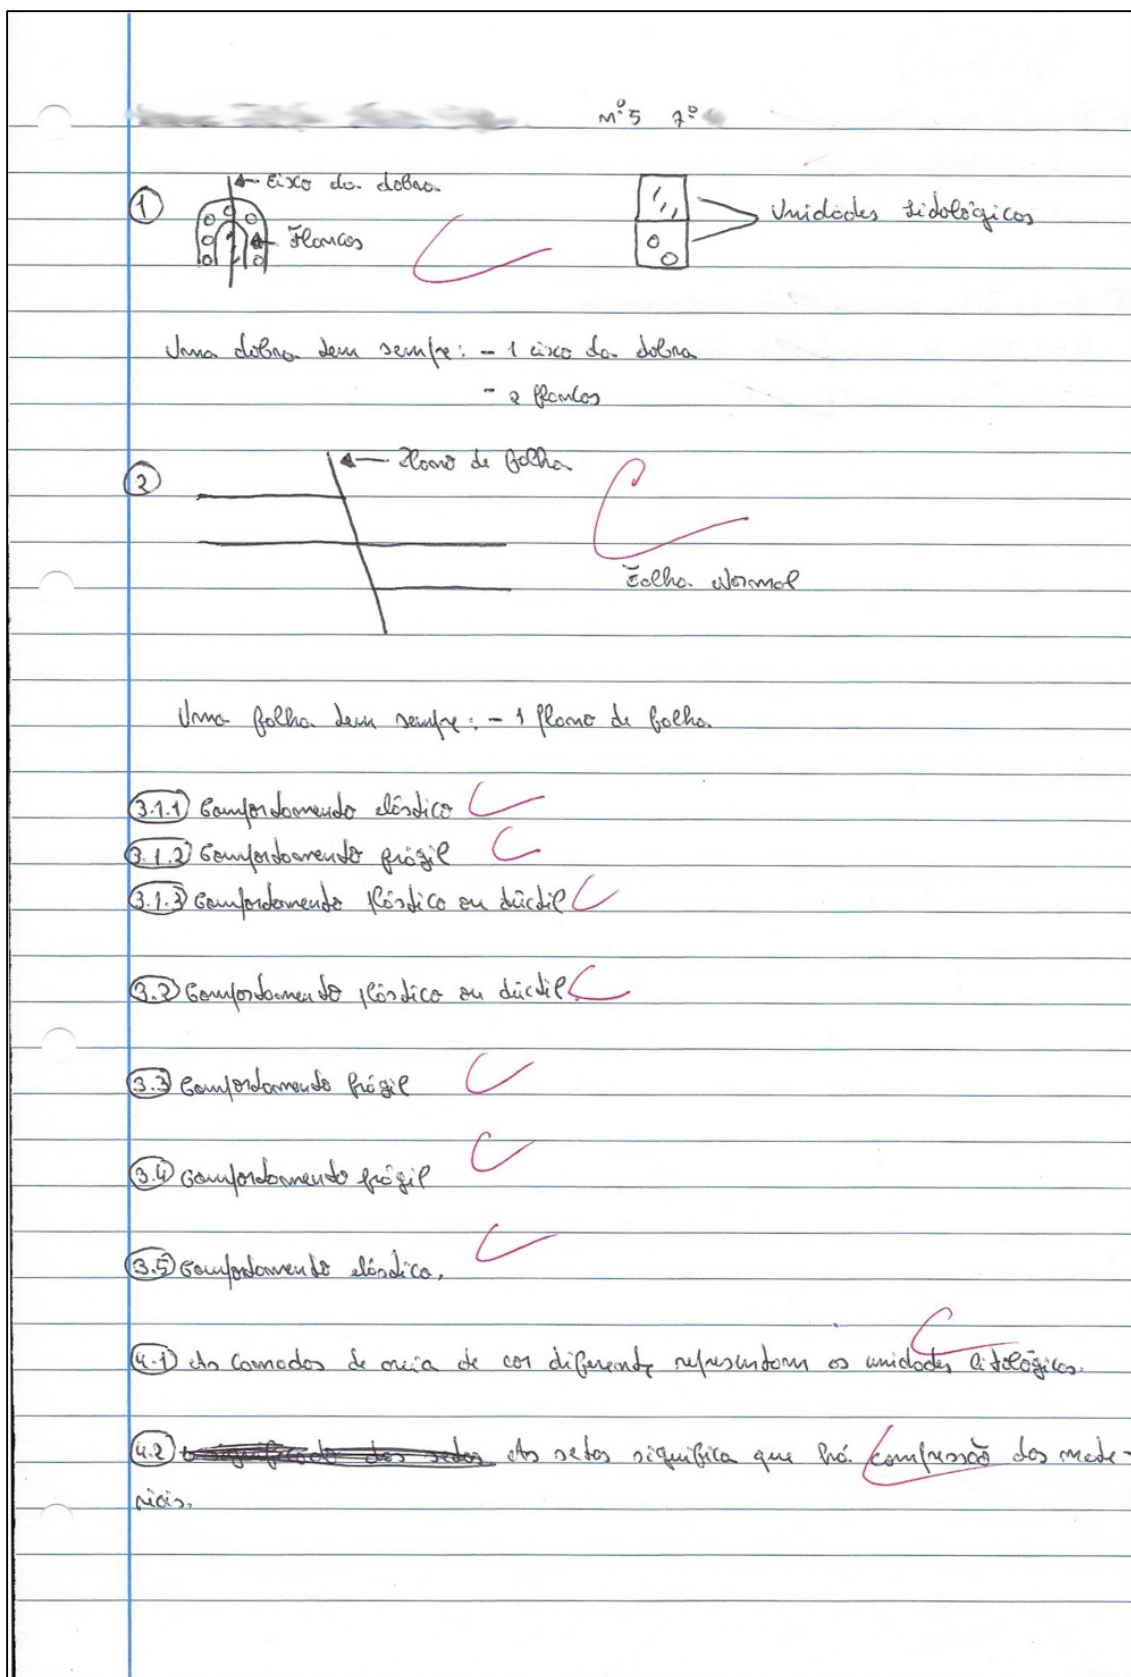 nº5 7º
① Eixo da dobra
Flancos
Unidades Litológicas
Uma dobra tem sempre: - 1 eixo da dobra
- 2 flancos
② Plano de falha
Falha Normal
Uma falha tem sempre: - 1 plano de falha.
3.1.1 Comportamento elástico
3.1.2 Comportamento frágil
3.1.3 Comportamento plástico ou dúctil
3.2 Comportamento plástico ou dúctil.
3.3 Comportamento frágil
3.4 Comportamento frágil
3.5 Comportamento elástico.
4.1 As camadas de areia de cor diferente representam as unidades litológicas.
4.2 As setas significa que há compressão dos mate-
riais.